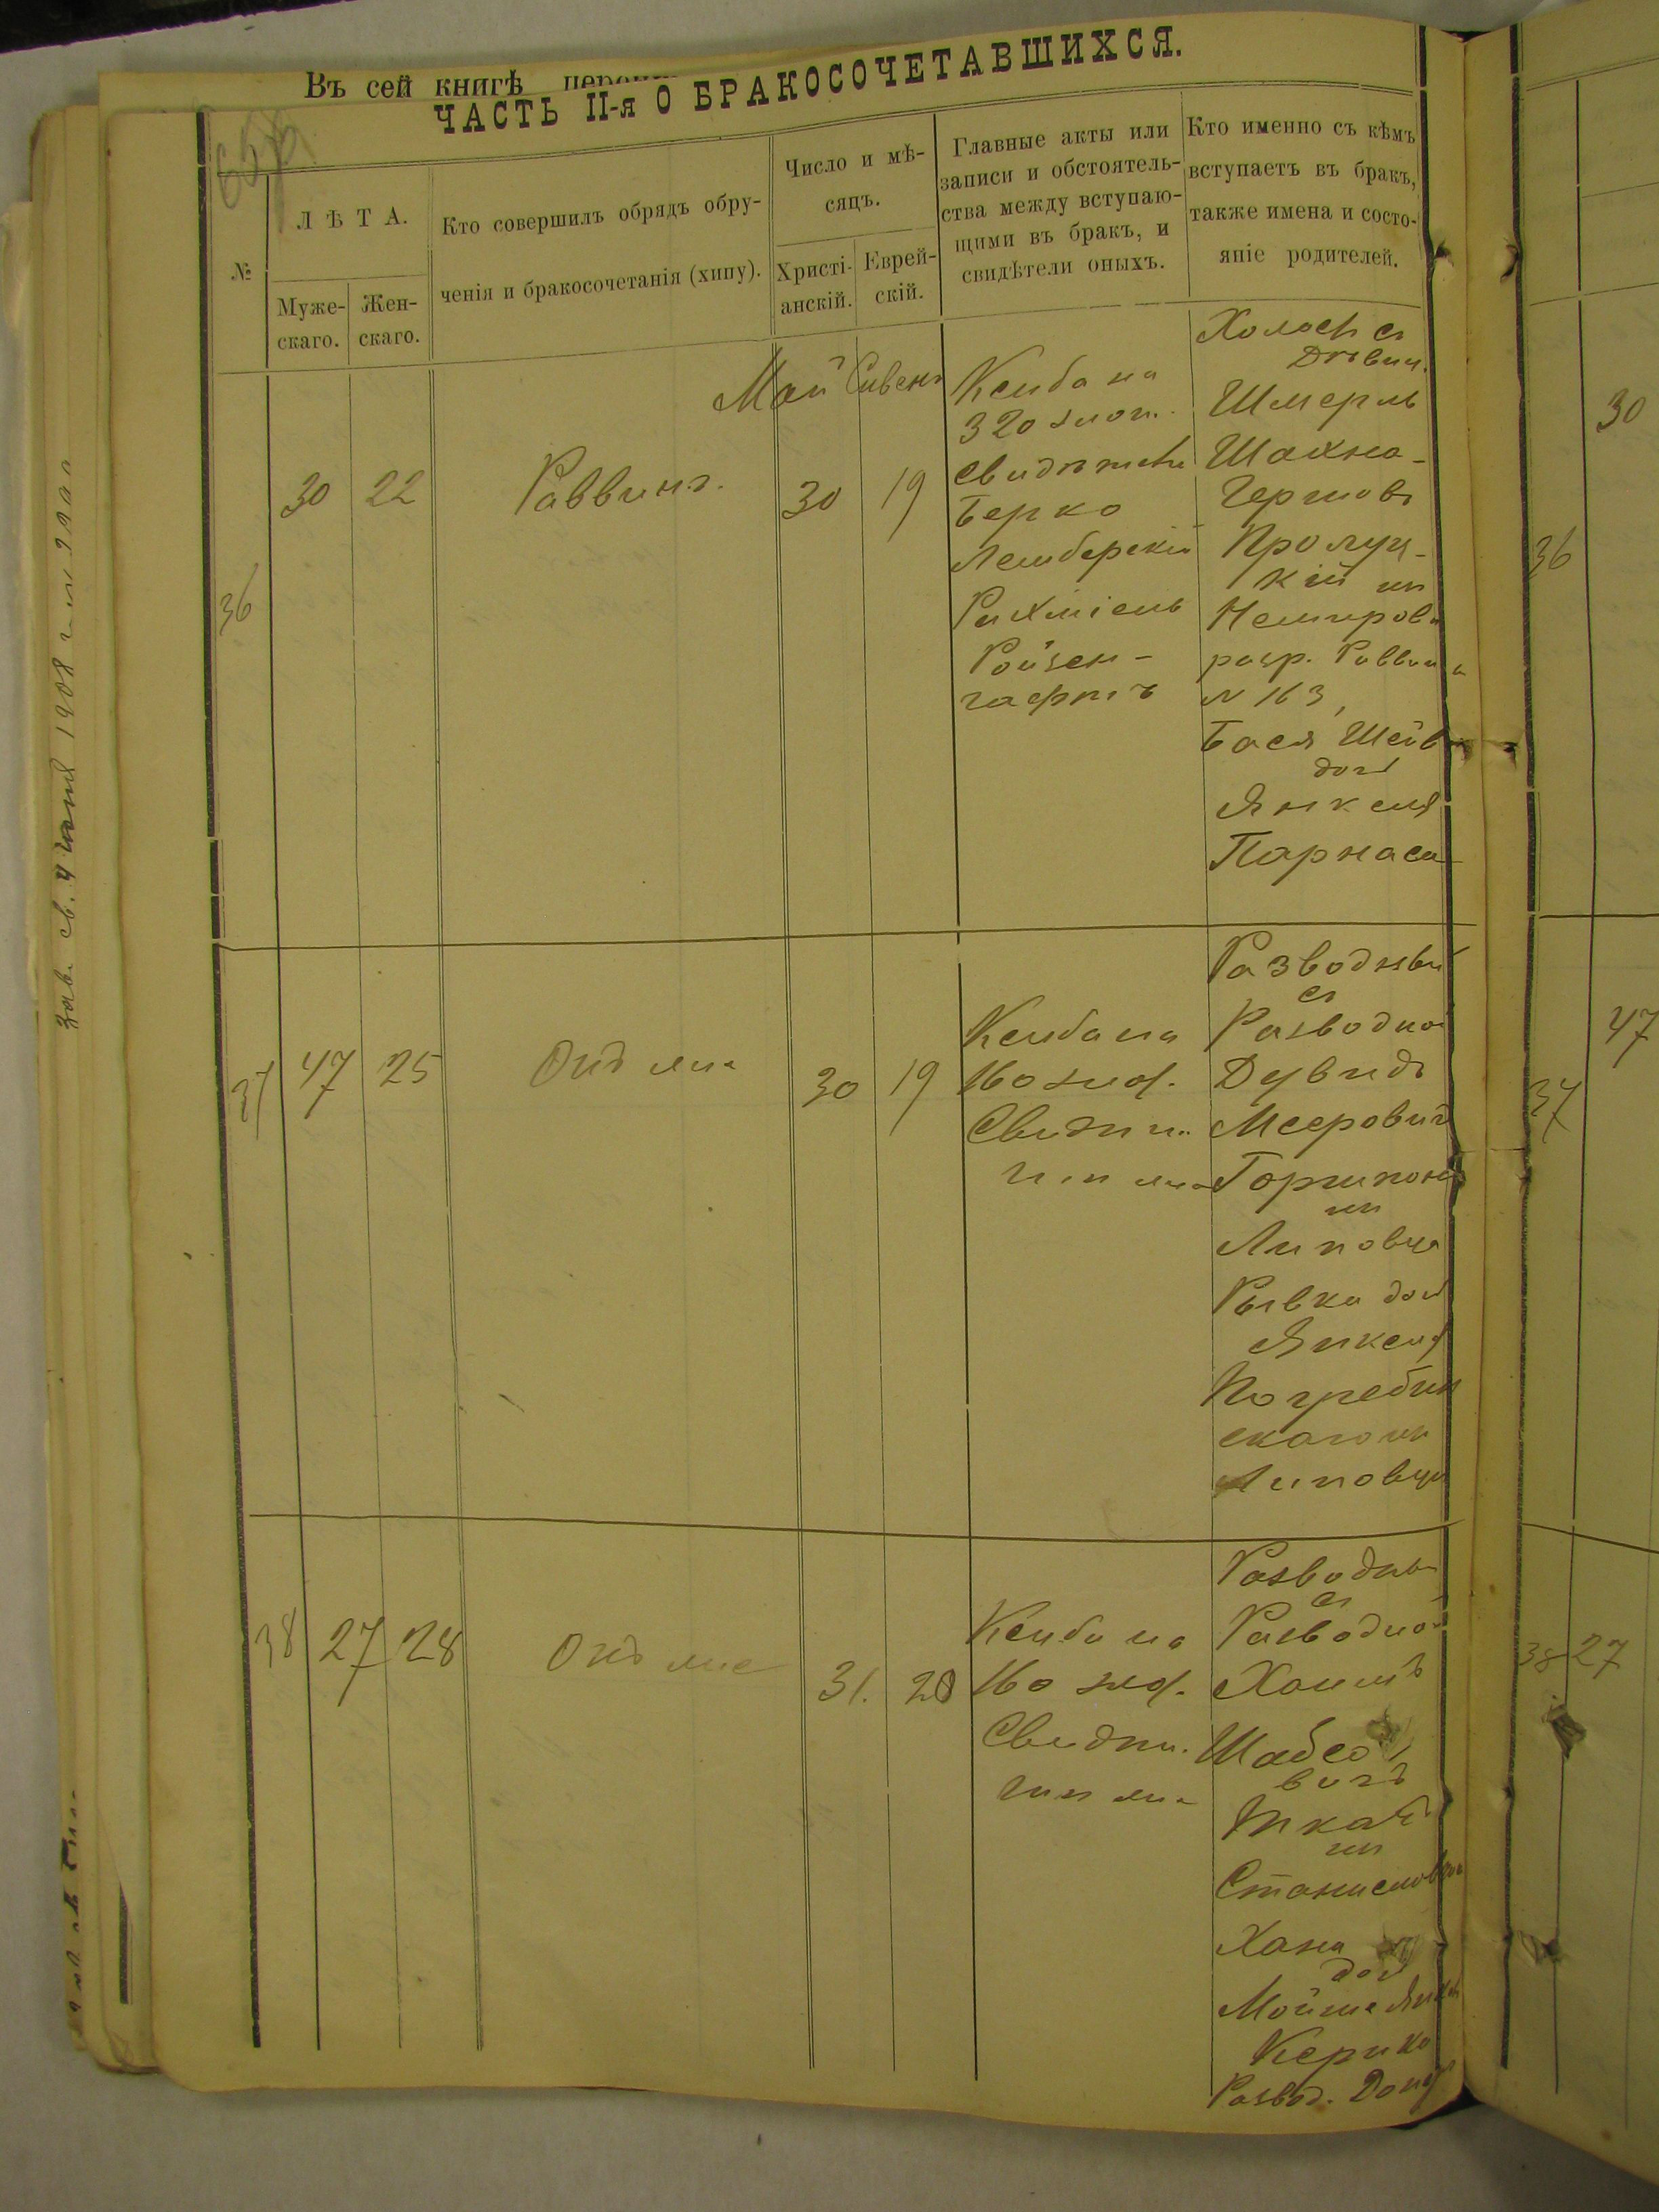 Въ сей книгѣ
ЧАСТЬ II-я О БРАКОСОЧЕТАВШИХСЯ.
№
ЛѢТА.
Муже-
скаго.
Жен-
скаго.
Кто совершилъ обрядъ обру-
ченія и бракосочетанія (хипу).
Число и мѣ-
сяцъ.
Христі-
анскій.
Еврей-
скій.
Главные акты или
записи и обстоятель-
ства между вступаю-
щими въ бракъ, и
свидѣтели оныхъ.
Кто именно съ кѣмъ
вступаетъ въ бракъ,
также имена и состо-
яніе родителей.
Май Сивенъ
36
30
22
Раввинъ.
30
19
Кетба на
320 злот.
Свидѣтели
Берко
Лемберскій
Рихміель
Ройзен-
гафтъ
Холост съ
Дѣвиц.
Шмерль
Шахна-
Гершовъ
Пролуц-
кій изъ
Немирова
разр. Раввина
N 163,
Бася Шейва
доч
Янкеля
Парнаса
37
47
25
Онъ же
30
19
Кетба на
160 злот.
Свидѣт.
тѣ же
Разводный
съ
Разводной
Дувидъ
Мееровичъ
изъ
Липовца
Ривка доч
Янкеля
Погребин
скаго изъ
Липовца
38
27
28
Онъ же
31.
20
Кетба на
160 злот.
Свидѣт.
тѣ же
Разводный
съ
Разводной
Хаимъ
Шабсо
вичъ
Ткачъ
изъ
Хана
доч
Мойше Янкел
Развод.
30
36
47
37
38
27